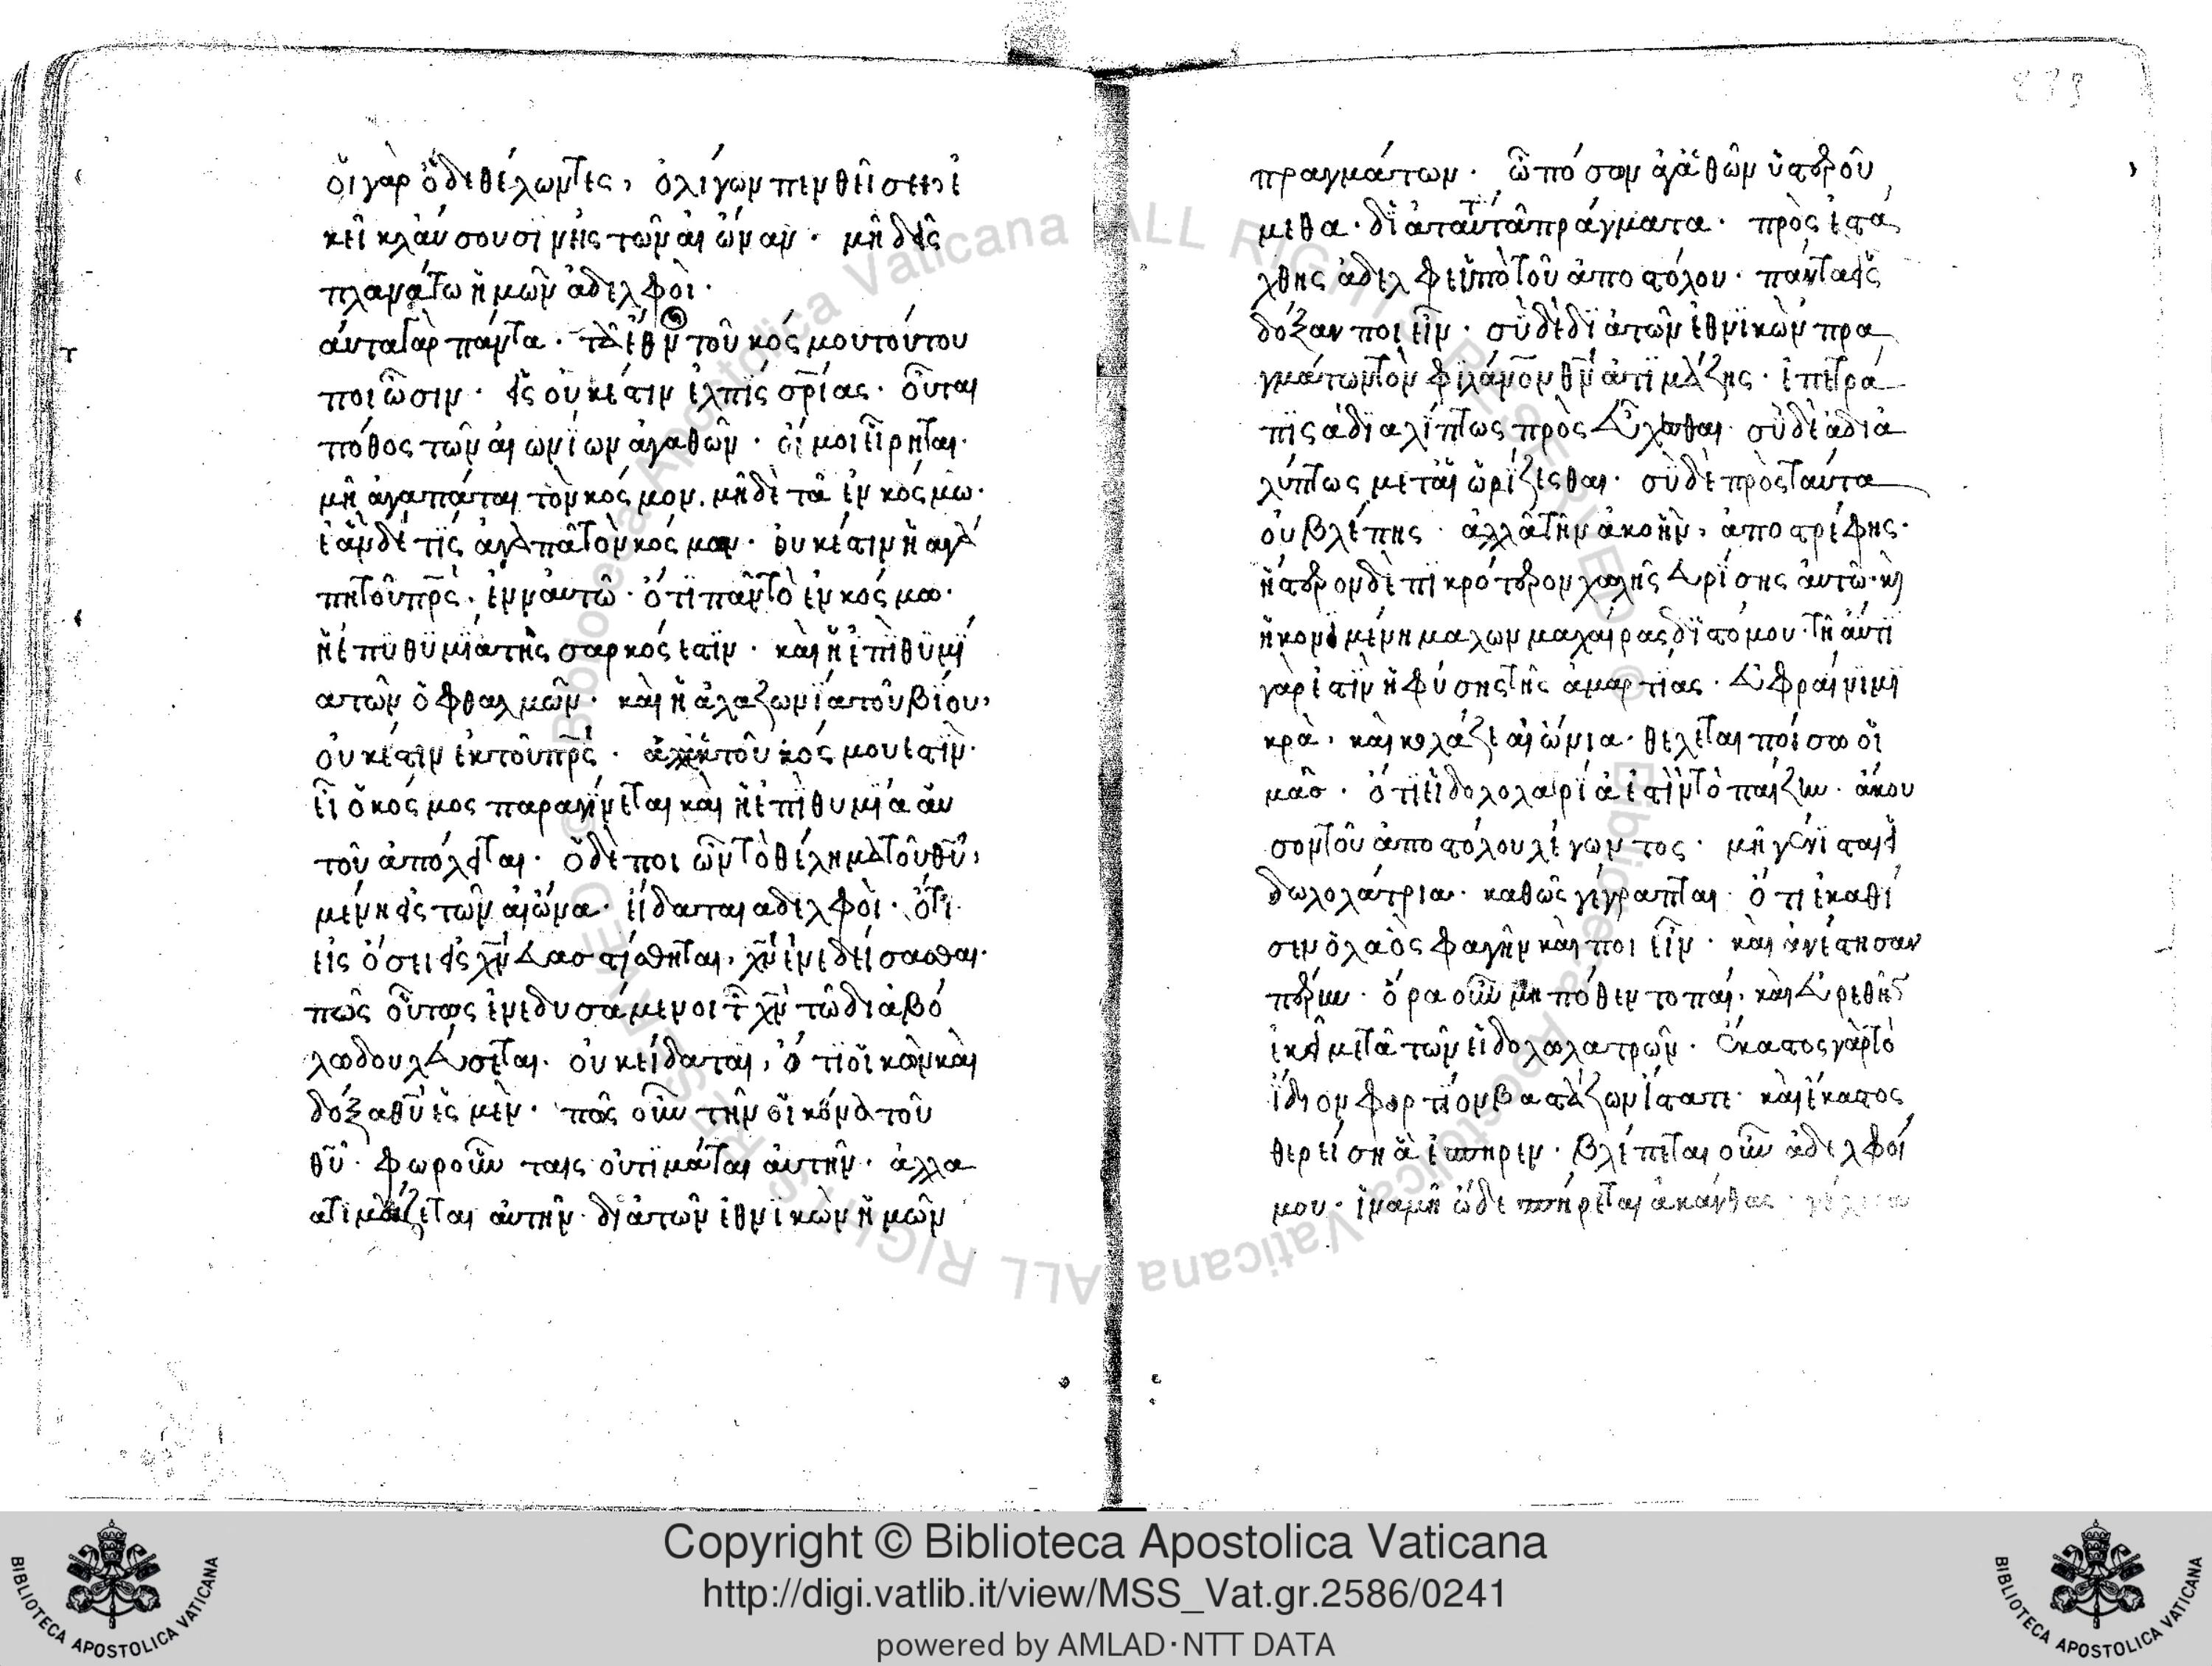 οἵ γὰρ ὅδε θέλωντες, ὀλίγων πενθεῖσειεἰ
κεῖ κλάυσουσϊν εἰς τῶν αἰώναν · μηδεὶς
πλανάτω ἡμῶν ἀδελφοὶ ·
ἀύτα γὰρ πάντα · τὰ ἔθν τοῦ κόσμου τούτου
ποιῶσιν · εἰς οὐκέστιν ἐλπῒς σ̅ρ̅ίας · οὖται
πόθος τῶν αἰωνΐων ἀγαθῶν · οἴμοι εἴρηται ·
μὴ ἀγαπάται τὸν κόσμον, μηδὲ τὰ ἐν κόσμω ·
ἐἂν δέ τῒς ἀγαπᾶ τὸν κόσμον · ουκέστιν ἡ αγά
πη τοῦ π̅ρ̅ς, ἐνν ἀυτῶ · ὅτι πᾶν τὸ ἐν κόσμω ·
ἡ ἐπϋθϋμΐα τῆς σαρκός εστϊν · καὶ ἡ ἐπϊθϋμΐ
α τῶν ὀφθαλμῶν · καὶ ἡ ἀλαζωνΐα τοῦ βΐου,
ουκέστιν ἐκ τοῦ π̅ρ̅ς · ἀλλ' ἐκ τοῦ κόσμου εστὶν ·
εἲ ὁ κόσμος παραγΐνεται καὶ ἡ ἐπϊθυμΐα ἀυ
τοῦ ἀπόλειται · ὁ δὲ ποιῶν τὸ θέλημα τοῦ θ̅υ̅,
μένη εἰς τῶν αἰῶνα · εἴδαται αδελφοὶ · ὅτι
εἰς ὅσει εἰς χ̅ν̅ ευαστίσθηται, χ̅ν̅ ἐνεδεί σασθαι ·
πῶς οὖτως ἐνεδυσάμενοι τ χ̅ν̅ τῶ διάβό
λω δουλεύσεται · ουκ είδαται, ὅτϊ οἴκων καὶ
δόξα θ̅υ̅ ἐσμὲν · πῶς οὖν τὴν οἴκόνα τοῦ
θ̅υ̅ · φωροῦν ταις οὐτϊμάται ἀυτὴν · ἀλλα
ατιμάζεται ἀυτὴν · διὰ τῶν ἐθνϊκῶν ἡμῶν
πραγμάτων · ὢ πόσον ἀγαθῶν ὑστερού
μεθα · δϊὰ ταῦτα τὰ πράγματα · πρὸς ἐστά
λθης ἀδελφεὶ ὑπὸ τοῦ ἀποστόλου · πάντα εἰς
δόξαν ποιεῖν · σὺ δὲ δϊὰ τῶν ἐθνϊκὼν πρα
γμάτων τὸν φϊλάνον θ̅ν̅ ἀτϊμάζης · ἐπετρά
πϊς ἀδϊαλίπτως πρὸς εύχεσθαι · σὺ δὲ ἀδιὰ
λύπτως μεταὶ ὡρΐζεσθαι · σὺ δὲ πρὸς ταύτα
οὐ βλέπης · ἀλλὰ τὴν ἀκοὴν, ἀποστρέφης ·
ἥστερον δὲ πϊκρότερον χολῆς ευρϊσης ἀυτῶ · κ
ἡκονιμένη μαλων μαχαίρας δϊστόμου · τῆ ἀυτϊ
γάρ ἐστϊν ἡ φύσης τῆς ἁμαρτϊας · ευφραίνϊ μϊ
κρὰ, καὶ κολάζει αἰώνια · θέλεται ποίσω οἵ
μᾶσ · ὅτϊ εἰδολολατρΐα ἐστϊν τὸ παίζην · ἄκου
σον τοῦ ἀποστόλου λέγωντος · μὴ γένϊσται εἰ
δωλολάτριαι · καθὼς γέγραπται · ὅτι ἐκαθί
σεν ὁ λαὸς φαγῆν καὶ ποιεῖν · καὶ ἀνέστησαν
πέζην · ὅρα οὖν μὴ πόθεν το παί, καὶ ευρεθῆς
ἐκεῖ μετὰ τῶν εἰδολωλατρῶν · ἕκαστος γὰρ τὸ
ΐδιον φορτΐον βαστάζων ΐσταπε · καὶ έκαστος
θερείση ἃ ἔσπηρεν · βλέπεται οὖν ἀδελφοί
μου · ἵνα μὴ ὧδε σπήρεται ἀκάνθας ·
Copyright © Biblioteca Apostolica Vaticana
http://digi.vatlib.it/view/MSS_Vat.gr.2586/0241
powered by AMLAD·NTT DATA
BIBLIOTECA APOSTOLICA VATICANA
BIBLIOTECA APOSTOLICA VATICANA